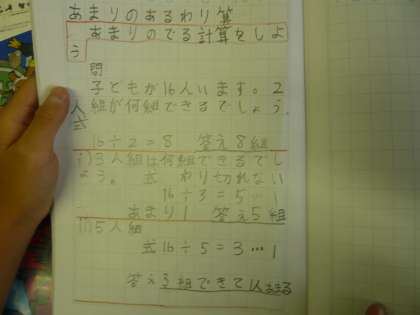 あまりのあるわり算
あまりのでる計算をしよ
う
問
子どもが16人います。2
人組が何組できるでしょう。
式
16÷2=8 答え8組
i)3人組は何組できるでし
ょう。 式 わり切れない
16÷3=5…1
あまり1 答え5組
ii)5人組
式16÷5=3…1
答え3組できて1人あまる